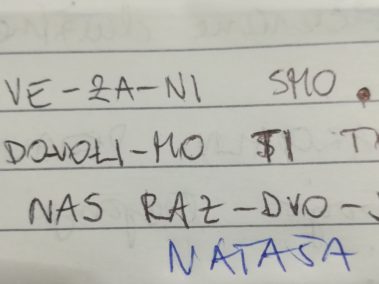 VE-ZA-NI SMO.
DOVOLI-MO TI
NAS RAZ-DVO-
NATAŠA